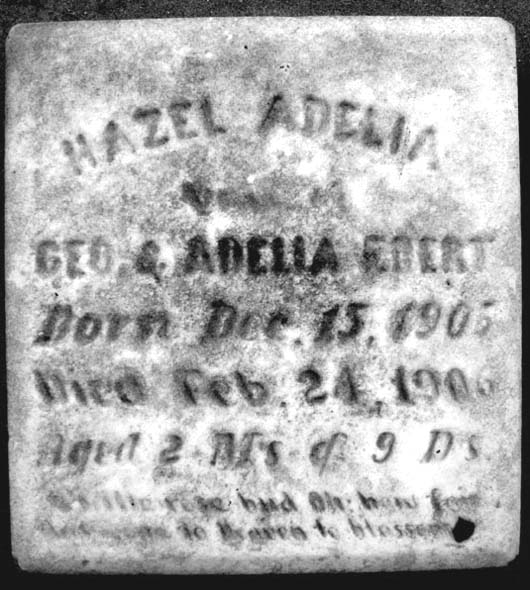 HAZEL ADELIA
GEO. & ADELIA EBERT
Born Dec. 15, 1905
Died Feb. 24, 1906
Aged 2 Ms & 9 Ds
rose bud Oh; how
to Heaven to blossom